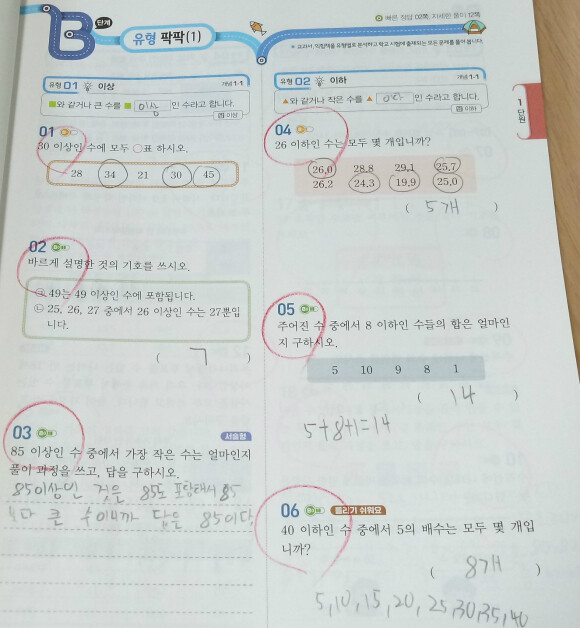 B 단계
유형 팍팍(1)
빠른 정답 02쪽, 자세한 풀이 12쪽
유형 01 이상
개념 1-1
■와 같거나 큰 수를 ■ 이상 인 수라고 합니다.
답 이상
01
30 이상인 수에 모두 ○표 하시오.
28 34 21 30 45
02
바르게 설명한 것의 기호를 쓰시오.
㉠ 49는 49 이상인 수에 포함됩니다.
㉡ 25, 26, 27 중에서 26 이상인 수는 27뿐입
니다.
( ㄱ )
03
서술형
85 이상인 수 중에서 가장 작은 수는 얼마인지
풀이 과정을 쓰고, 답을 구하시오.
85이상인 것은 85도 포함해서 85
보다 큰 수이니까 답은 85이다
유형 02 이하
개념 1-1
▲와 같거나 작은 수를 ▲ 이하 인 수라고 합니다.
답 이하
1
단원
04
26 이하인 수는 모두 몇 개입니까?
26.0 28.8 29.1 25.7
26.2 24.3 19.9 25.0
( 5개 )
05
주어진 수 중에서 8 이하인 수들의 합은 얼마인
지 구하시오.
5 10 9 8 1
( 14 )
5+8+1=14
06 틀리기 쉬워요
40 이하인 수 중에서 5의 배수는 모두 몇 개입
니까?
( 8개 )
5,10,15,20, 25,30,35,40